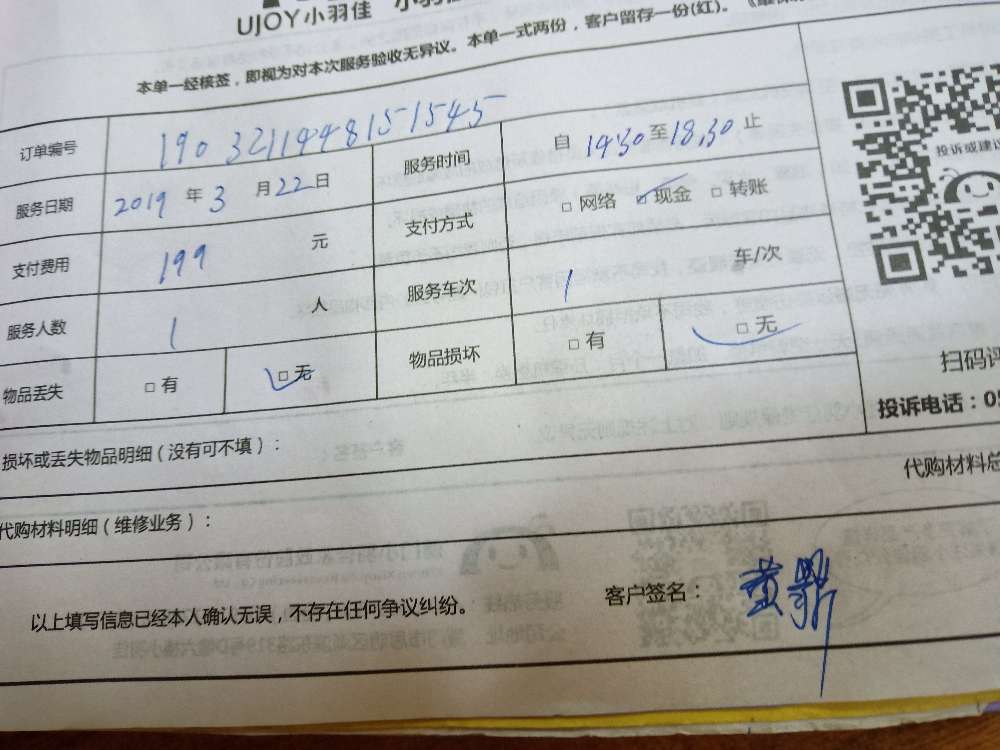 UJOY小羽佳
本单一经核签，即视为对本次服务验收无异议。本单一式两份，客户留存一份(红)。
订单编号 19032119448151545 服务时间 自 14:30 至 18:30 止
服务日期 2019 年 3 月 22 日 支付方式 □ 网络 ☑ 现金 □ 转账
支付费用 199 元 服务车次 1 车/次
服务人数 1 人 物品损坏 □ 有 □ 无
物品丢失 □ 有 □ 无
投诉或建议
扫码评
投诉电话：05
损坏或丢失物品明细（没有可不填）：
代购材料总
代购材料明细（维修业务）：
以上填写信息已经本人确认无误，不存在任何争议纠纷。
客户签名：黄鼎